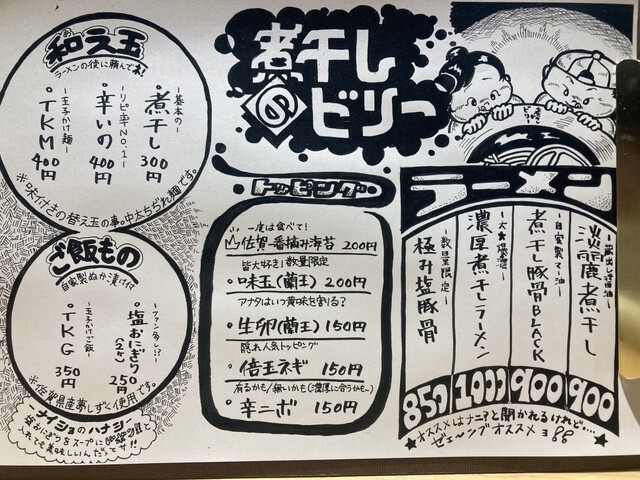 煮干しビリー
和え玉
ラーメンの後に頼んでネ!
ー基本のー
・煮干し 300円
ーリピ率No.1ー
・辛いの 400円
ー玉子かけ麺ー
・TKM 400円
※味付きの替え玉の事。中太ちぢれ麺です。
ご飯もの
自家製ぬか漬け付
ーファン多し!?ー
・塩おにぎり(2ケ) 250円
ー玉子かけご飯ー
・TKG 350円
※佐賀県産夢しずく使用です。
ナイショのハナシ
塩おにぎりをスープに
れても美味しいんだってサ!!
トッピング
一度は食べて!
佐賀一番摘み海苔 200円
皆大好き!数量限定
・味玉(蘭王) 200円
アナタはいつ黄味を割る?
・生卵(蘭王) 150円
隠れ人気トッピング
・倍玉ネギ 150円
有るかも/無いかも(濃厚に合うかもー)
・辛ニボ 150円
ラーメン
淡麗煮干し 900
ー自家製マー油ー
煮干し豚骨BLACK 900
濃厚煮干しラーメン 1000
ー数量限定ー
極み塩豚骨 850
オススメはナニ?と聞かれるけれど…
ゼェ〜ンブオススメョ!!